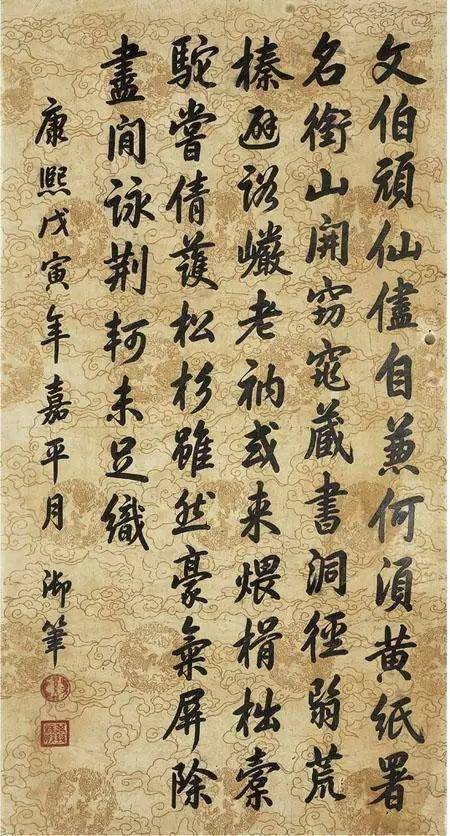 文伯頑仙儘自兼何須黃紙署
名銜山開窈窕藏書洞徑荒
榛避巖老衲或来煨榾柮橐
駝嘗倩護松杉雖然豪氣屏除
盡間詠荆軻未足織
康熙戊寅年嘉平月 御筆